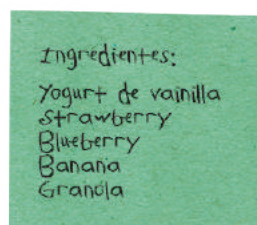 Ingredientes:
Yogurt de vainilla
Strawberry
Blueberry
Banana
Granola